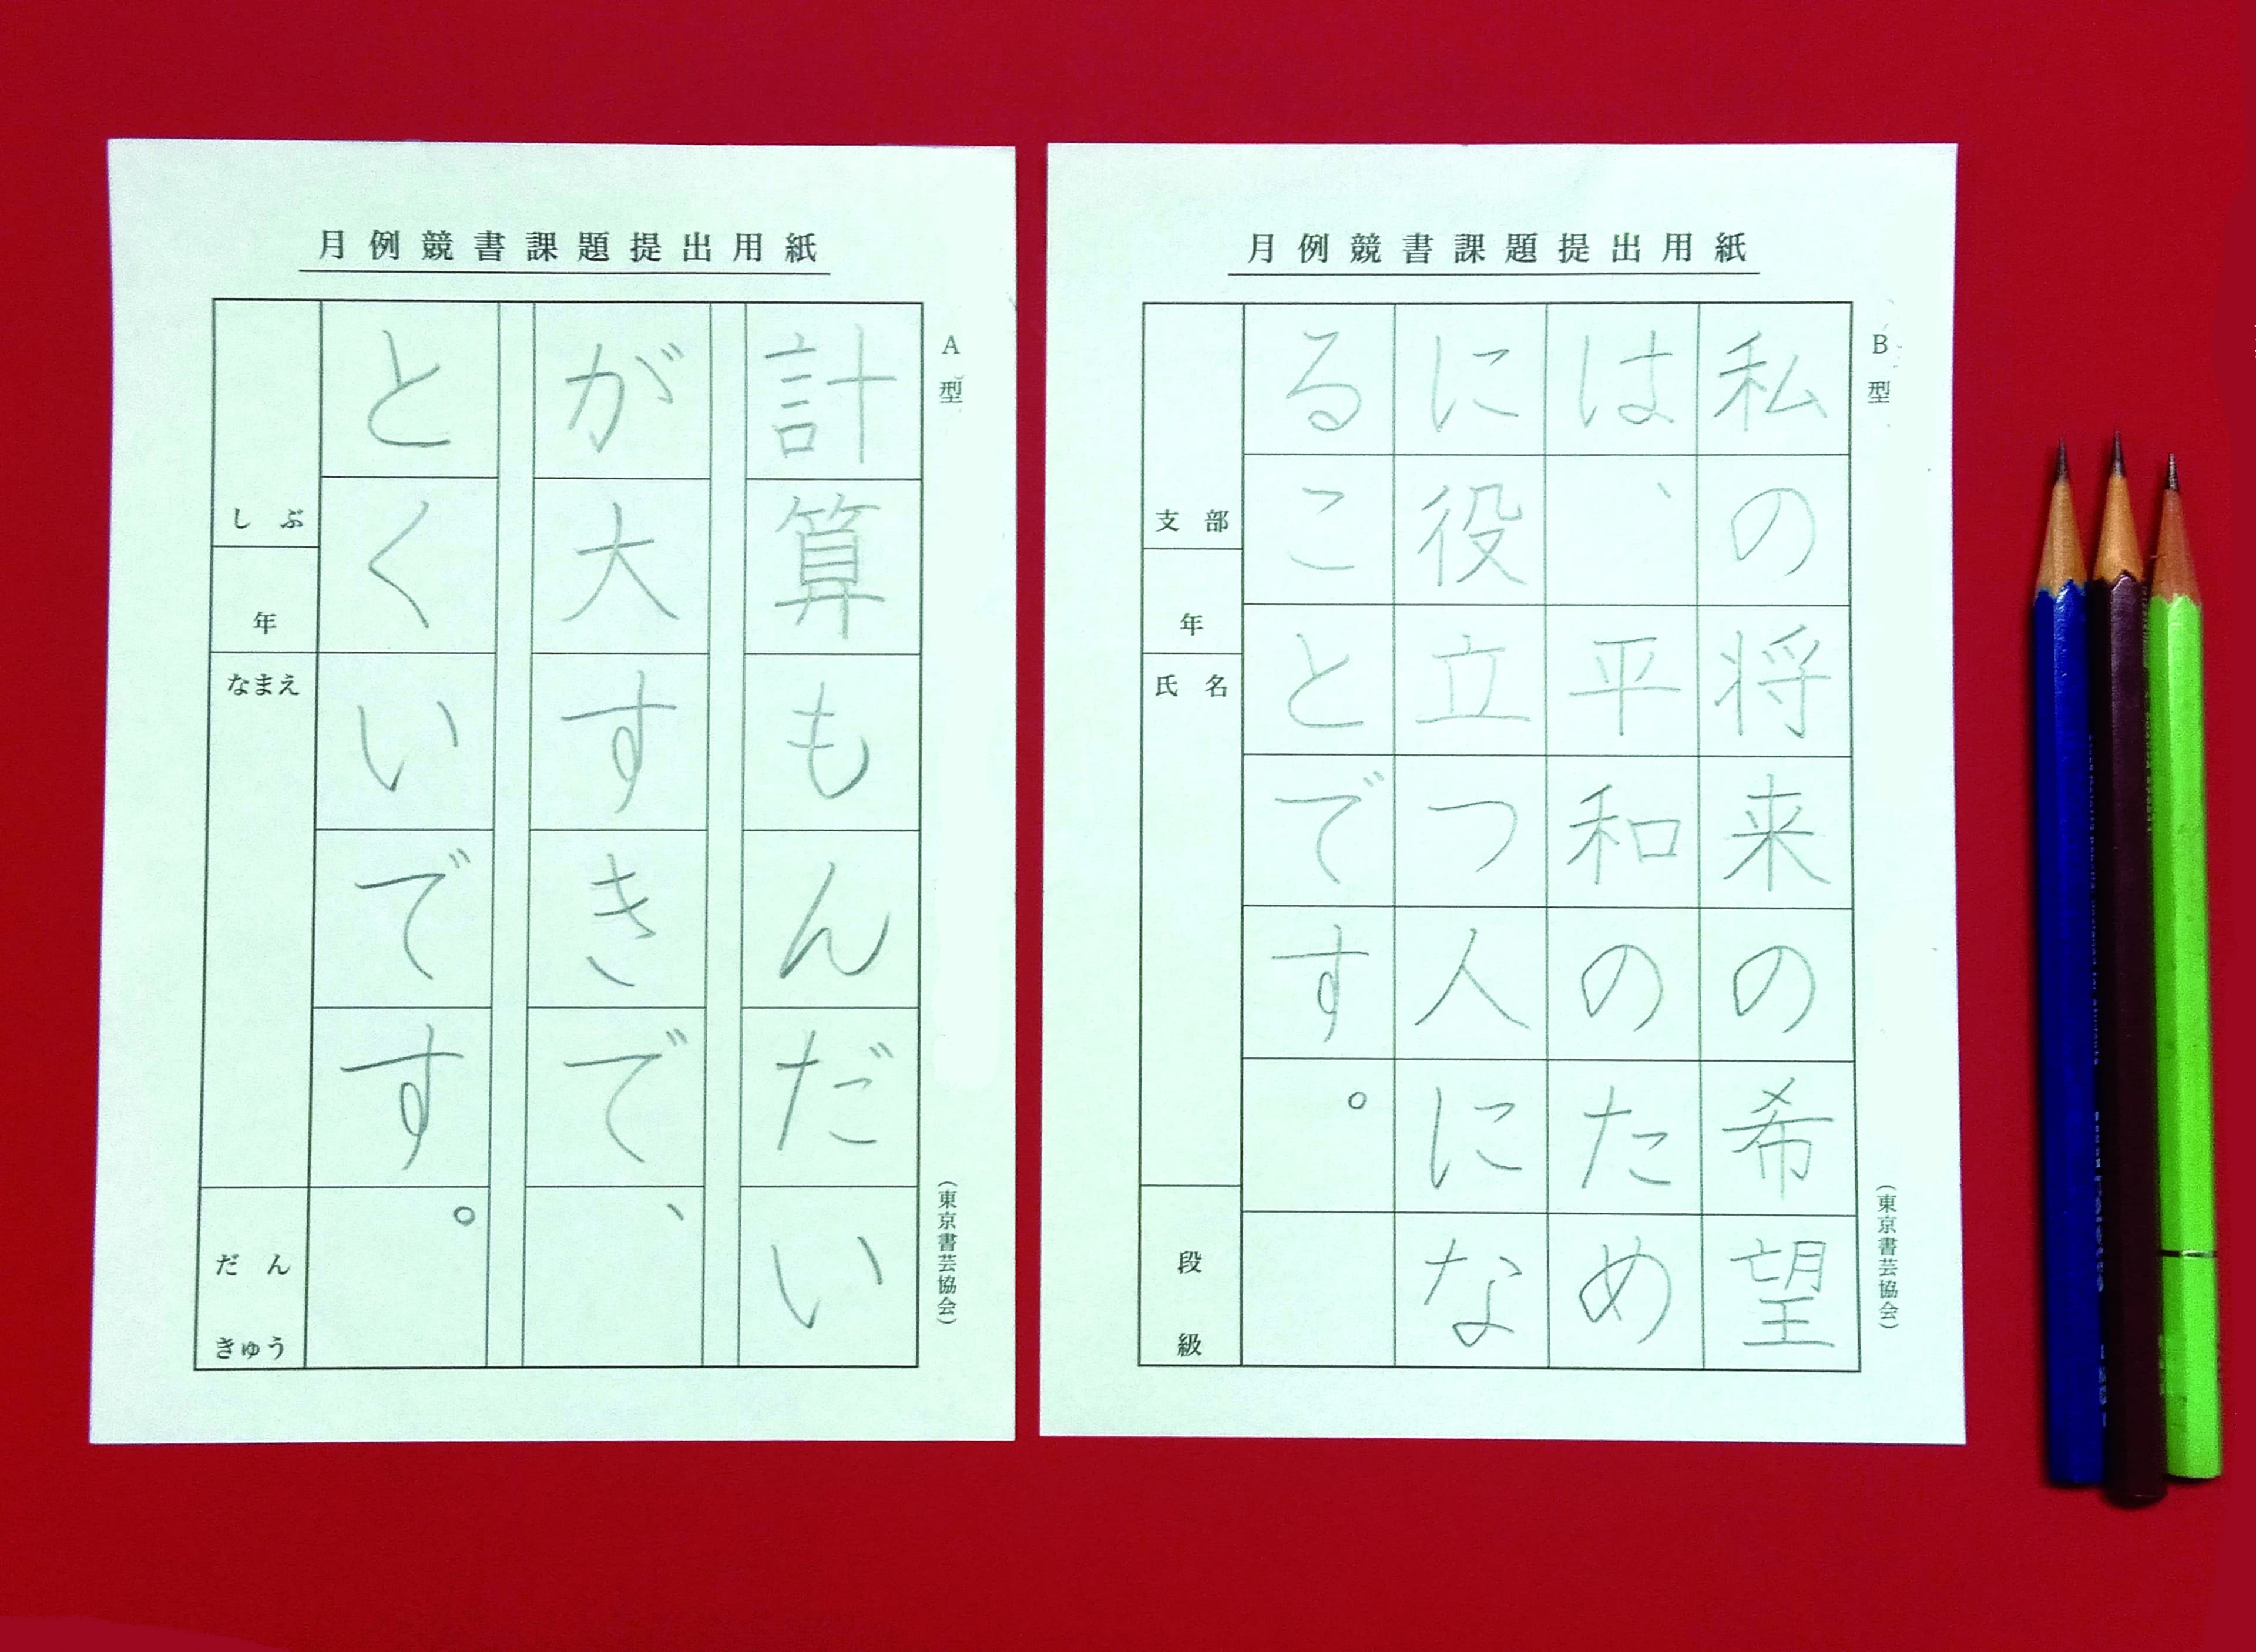 月例競書課題提出用紙
A型
計算もんだい
が大すきで、
とくいです。
しぶ
年
なまえ
だん
きゅう
(東京書芸協会)
月例競書課題提出用紙
B型
私の将来の希望
は、平和のため
に役立つ人にな
ることです。
支部
年
氏名
段
級
(東京書芸協会)